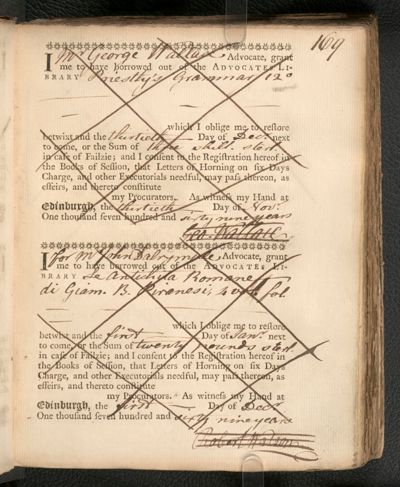 169
I Mr George Wallace Advocate, grant
me to have borrowed out of the ADVOCATES LI-
BRARY Priestly's Grammar 12o
which I oblige me to restore
betwixt and the thirtieth Day of Decr. next
to come, or the Sum of three shill. sterl.
in case of Failzie; and I consent to the Registration hereof in
the Books of Session, that Letters of Horning on six Days
Charge, and other Executorials needful, may pass thereon, as
effeirs, and thereto constitute
my Procurators. As witness my Hand at
Edinburgh, the thirtieth Day of Novr.
One thousand seven hundred and sixty nine years
Geo. Wallace
I for Mr John Dalrymple Advocate, grant
me to have borrowed out of the ADVOCATES LI-
BRARY Le Antichita Romane
di Giam. B. Piranesi, 4 vols fol.
which I oblige me to restore
betwixt and the first Day of Janry. next
to come, or the Sum of twenty pounds sterl.
in case of Failzie; and I consent to the Registration hereof in
the Books of Session, that Letters of Horning on six Days
Charge, and other Executorials needful, may pass thereon, as
effeirs, and thereto constitute
my Procurators. As witness my Hand at
Edinburgh, the first Day of Decr.
One thousand seven hundred and sixty nine years
Robert